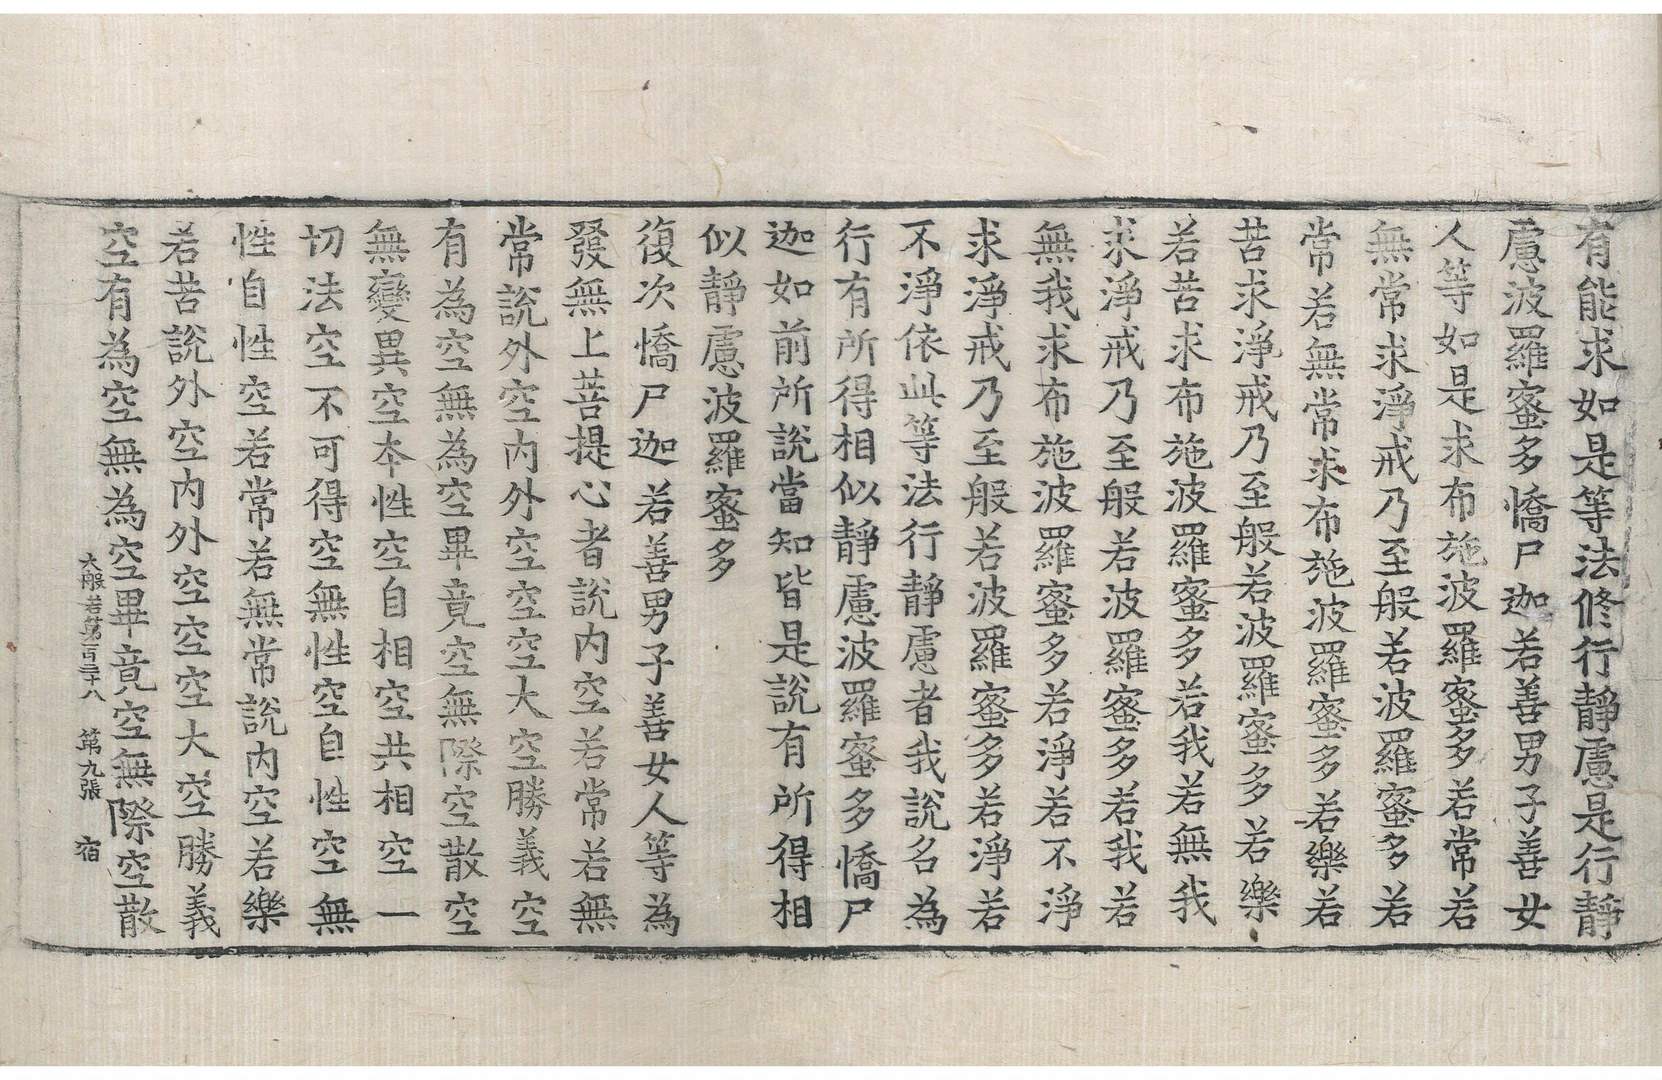 有能求如是等法修行靜慮是行靜
慮波羅蜜多憍尸迦若善男子善女
人等如是求布施波羅蜜多若常若
無常求淨戒乃至般若波羅蜜多若
常若無常求布施波羅蜜多若樂若
苦求淨戒乃至般若波羅蜜多若樂
若苦求布施波羅蜜多若我若無我
求淨戒乃至般若波羅蜜多若我若
無我求布施波羅蜜多若淨若不淨
求淨戒乃至般若波羅蜜多若淨若
不淨依此等法行靜慮者我說名為
行有所得相似靜慮波羅蜜多憍尸
迦如前所說當知皆是說有所得相
似靜慮波羅蜜多
復次憍尸迦若善男子善女人等為
發無上菩提心者說內空若常若無
常說外空內外空空空大空勝義空
有為空無為空畢竟空無際空散空
無變異空本性空自相空共相空一
切法空不可得空無性空自性空無
性自性空若常若無常說內空若樂
若苦說外空內外空空空大空勝義
空有為空無為空畢竟空無際空散
大般若第一百三十八 第九張 宿